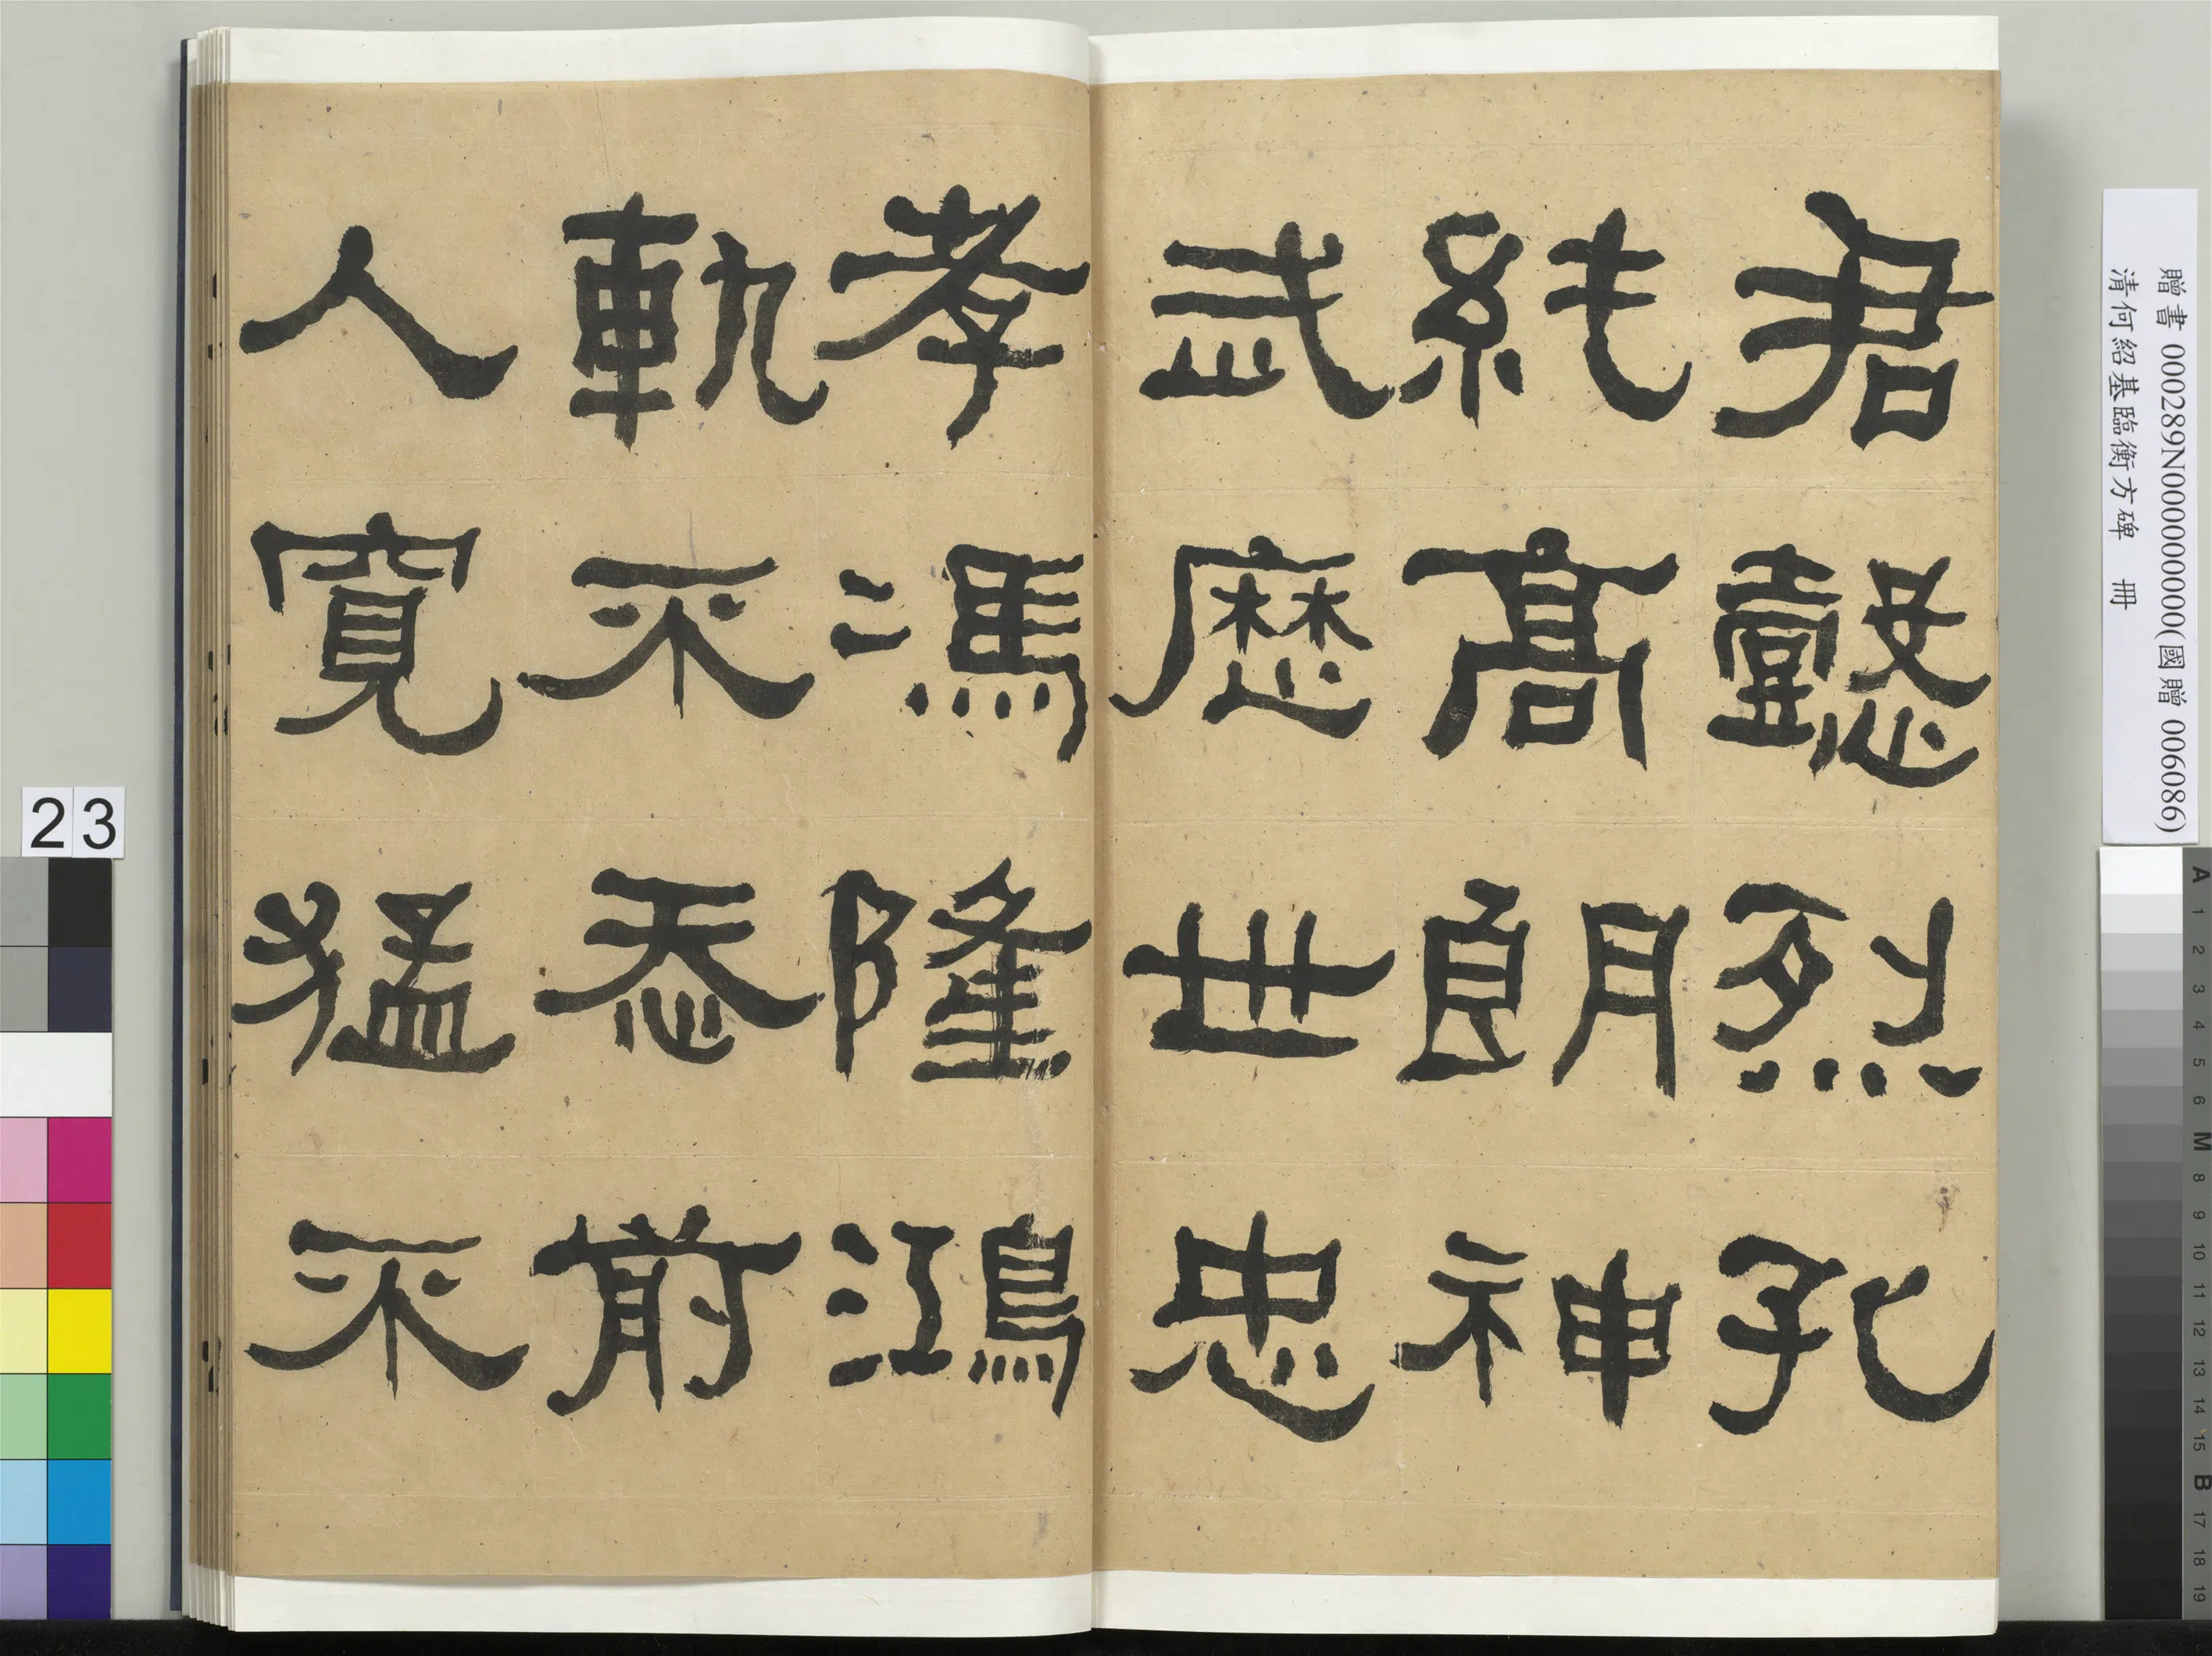 君懿烈孔
純高朗神
武歷世忠
孝馮隆鴻
軌不忝前
人寬猛不
贈書 000289N000000000(國贈 006086)
清何紹基臨衡方碑 冊
23
A 1 2 3 4 5 6 M 8 9 10 11 12 13 14 15 B 17 18 19